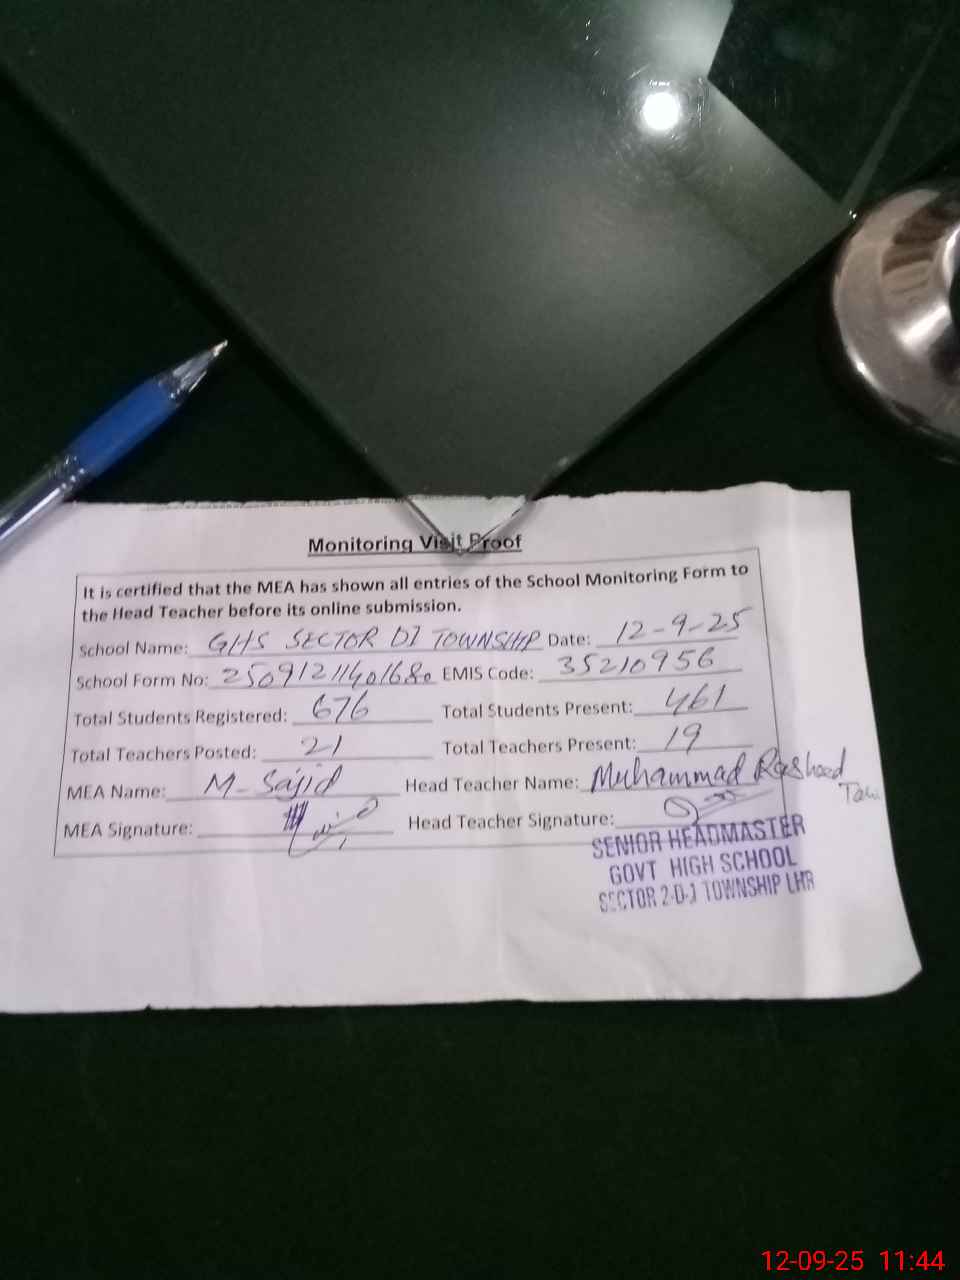 Monitoring Visit Proof
It is certified that the MEA has shown all entries of the School Monitoring Form to
the Head Teacher before its online submission.
School Name: GHS SECTOR D1 TOWNSHIP Date: 12-9-25
School Form No: 2509121140168 EMIS Code: 35210956
Total Students Registered: 676 Total Students Present: 461
Total Teachers Posted: 21 Total Teachers Present: 19
MEA Name: M-Sajid Head Teacher Name: Muhammad Rasheed
MEA Signature: Head Teacher Signature:
SENIOR HEADMASTER
GOVT HIGH SCHOOL
SECTOR 2-D-1 TOWNSHIP LHR
12-09-25 11:44